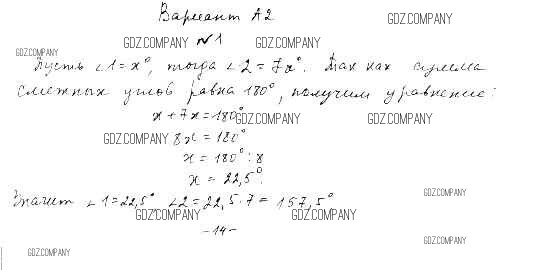 Вариант А2
GDZ.COMPANY
GDZ.COMPANY №1 GDZ.COMPANY
GDZ.COMPANY
Пусть ∠1=x°, тогда ∠2=7x°. Так как сумма
смежных углов равна 180°, получим уравнение:
x+7x=180° GDZ.COMPANY GDZ.COMPANY
GDZ.COMPANY 8x=180°
x=180°:8
x=22,5°.
GDZ.COMPANY
Значит ∠1=22,5° ∠2=22,5·7=157,5°
GDZ.COMPANY GDZ.COMPANY
-14-
GDZ.COMPANY
GDZ.COMPANY